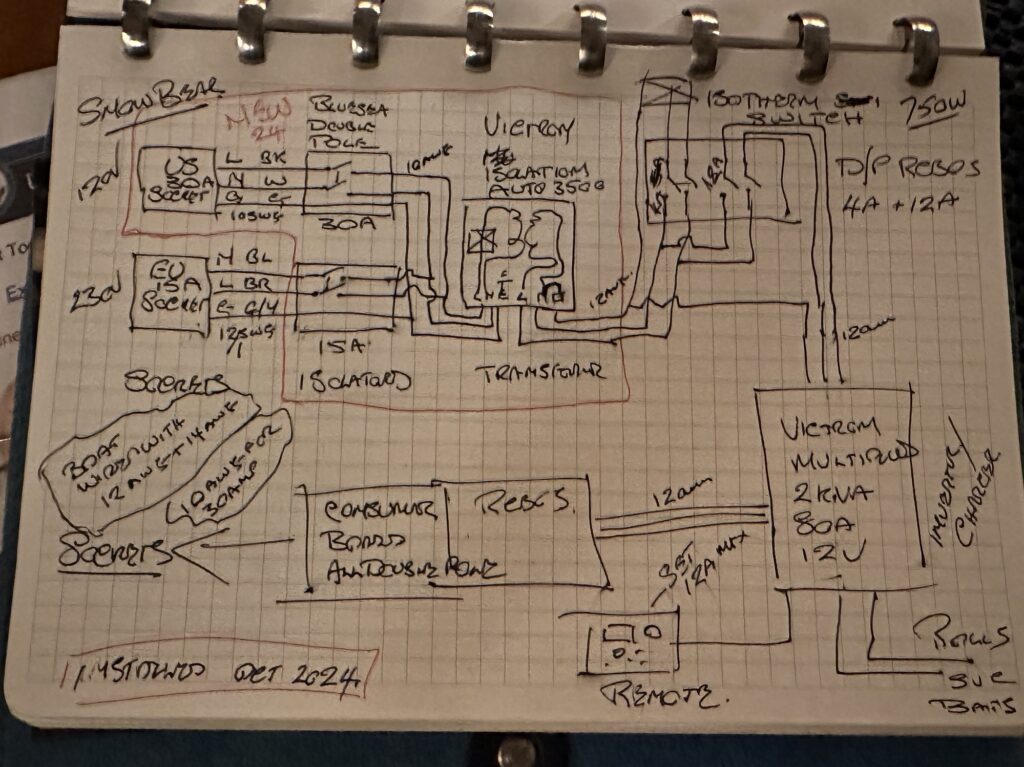 SNOWBEAR
NEW
24
BLUESEA
DOUBLE
POLE
VICTRON
ISOLATION
AUTO 3500
ISOTHERM
SWITCH
750W
D/P RCBOS
4A + 12A
120V
US
30A
SOCKET
L BK
N W
G
10SWG
30A
10AWG
12A
230V
EU
15A
SOCKET
N BL
L BR
E G/Y
12SWG
15A
ISOLATORS
TRANSFORMER
12AWG
12AWG
SOCKETS
BOAT
WIRED WITH
12AWG + 14AWG
10AWG FOR
30AMP
SOCKETS
CONSUMER
BOARD
ALL DOUBLE POLE
RCBOS.
12AWG
VICTRON
MULTIPLUS
2KVA
80A
12V
INVERTER /
CHARGER
SET
12A MAX
REMOTE.
ROLLS
SVC
BATTS
INSTALLED OCT 2024